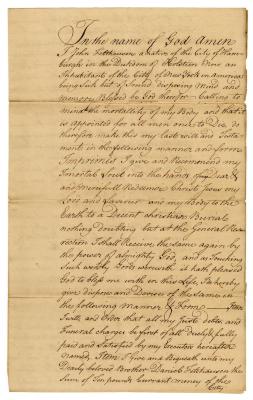 In the name of God Amen
I John Feltthausen a native of the City of Ham-
burgh in the Dukedom of Holstein Now an
Inhabitant of the City of New York in America
being Sick but of Sound disposing Mind and
memory blessed be God therefore Calling to
mind the mortallity of my Body and that it
is appointed for all men once to Die do
therefore make this my last will and Testa
ment in the following manner and form
Imprimis I give and Recommend my
Immortal Soul into the hands of my Dear &
and mercifull Redeemer Christ Jesus my
Lord and Saviour and my Body to the
Earth to a Decent christian Burial
nothing doubting but at the General Resur
rection I shall Receive the same again by
the power of almighty God, and as touching
Such worldly Goods wherewith it hath pleased
God to bless me with in this Life, I hereby
give dispose and Devises of the same in
the following Manner & Form Item
I will and Order that all my Just debts and
Funeral charges be first of all Duely & fully
paid and Satisfied by my Executor hereafter
named, Item I Give and Bequeath unto my
Dearly beloved Brother Daniel Feltthausen the
Sum of Ten pounds Currant money of the
City